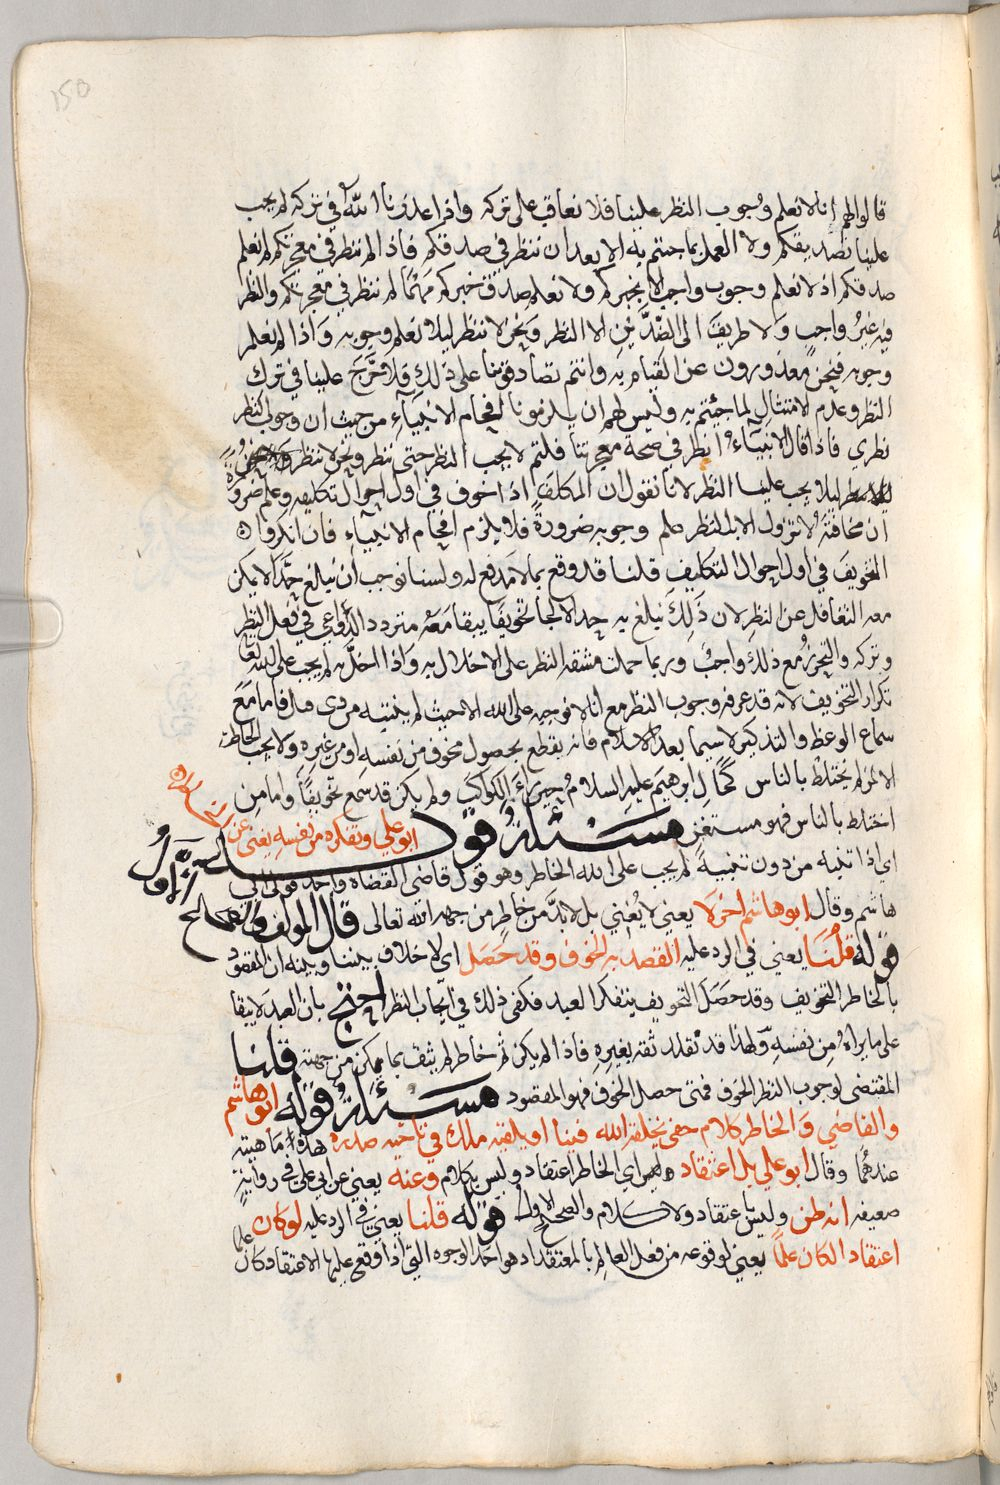 150
قالوا لهم انا لا نعلم وجوب النظر علينا فلا نعاقب على تركه واذا عذرنا الله في تركه لم يجب
علينا تصديقكم ولا العمل بما جئتم به الا بعد ان ننظر في صدقكم فاذا لم ننظر في معجزتكم لم نعلم
صدقكم اذ لا نعلم وجوب واجب الا بخبركم ولا نعلم صدق خبركم مهما لم ننظر في معجزتكم والنظر
فيه غير واجب ولا طريق الى الا النظر ونحن لا ننظر ليلا نعلم وجوبه واذا لم نعلم
وجوبه فنحن معذورون عن القيام به وانتم تصادقوننا على ذلك فلا حرج علينا في ترك
النظر وعدم الامتثال لما جيئتم به وليس لهم ان يلزمونا افحام الانبياء من حيث ان وجوب النظر
نظري فاذا قال الانبياء انظر في صحة معجزتنا قلتم لا يجب النظر حتى ننظر ونحن لا ننظر
ليلا يجب علينا النظر لانا نقول ان المكلف اذا خوف في اول احوال تكليفه وعلم ضرورة
ان مخافته لا تزول الا بالنظر علم وجوبه ضرورة فلا يلزم افحام الانبياء فان انكروا
التخويف في اول احوال التكليف قلنا قد وقع بما لا مدفع له ولسنا نوجب ان يبلغ حدا لا يمكن
معه التغافل عن النظر لان ذلك يبلغ به حد الالجا تخويفا يبقا معه متردد الدواعي في فعل النظر
وتركه والتحرز مع ذلك واجب وربما حملت مشقة النظر على الاخلال به واذا اخل به لم يجب على الله تعا
تكرار التخويف لانه قد عرفه وجوب النظر مع انا لا نوجبه على الله الا حيث لم ينتبه من دى قبل فاما مع
سماع الوعظ والتذكير لا سيما بعد الاسلام فانه يقطع بحصول مخوف من نفسه او من غيره ولا يجب الخاطر
الا لمن لم يختلط بالناس كحال ابراهيم عليه السلام حين راى الكواكب ولم يكن قد سمع تخويفا واما من
اختلط بالناس فهو مستغن مسئلة قوله ابو علي وتفكره من نفسه يغني عن
اي اذا تنبه من دون تنبيه لم يجب على الله الخاطر وهو قول قاضي القضاة واحد قولي ابي
هاشم وقال ابو هاشم اخرا لا يعني لا يغني بل لا بد من خاطر من جهة الله تعالى قال المولف
قوله قلنا يعني في الرد عليه القصد به الخوف وقد حصل اي لا خلاف بيننا وبينه ان المقصود
بالخاطر التخويف وقد حصل التخويف بتفكر العبد فكفى ذلك في ايجاب النظر احتج بان العبد لا يبقا
على ما يراه من نفسه ولهذا قد تقلد ثقة بغيره فاذا لم يكن ثم خاطر لم يثق بما يمكن من جهته قلنا
المقتضى لوجوب النظر الخوف فمتى حصل الخوف فهو المقصود مسئلة قوله ابو هاشم
والقاضي والخاطر كلام خفي يخلقه الله فينا او يلقيه ملك في ناحية صدره هذه ماهيته
عندهما وقال ابو علي بل اعتقاد اي الخاطر اعتقاد وليس بكلام وعنه يعني عن ابي علي في رواية
ضعيفة انه ظن وليس باعتقاد ولا كلام والصحيح الاول قوله قلنا يعني في الرد عليه لو كان
اعتقادا لكان علما يعني لوقوعه من فعل العالم بالمعتقد اذ هو احد الوجوه التي اذا وقع عليها الاعتقاد كان علما